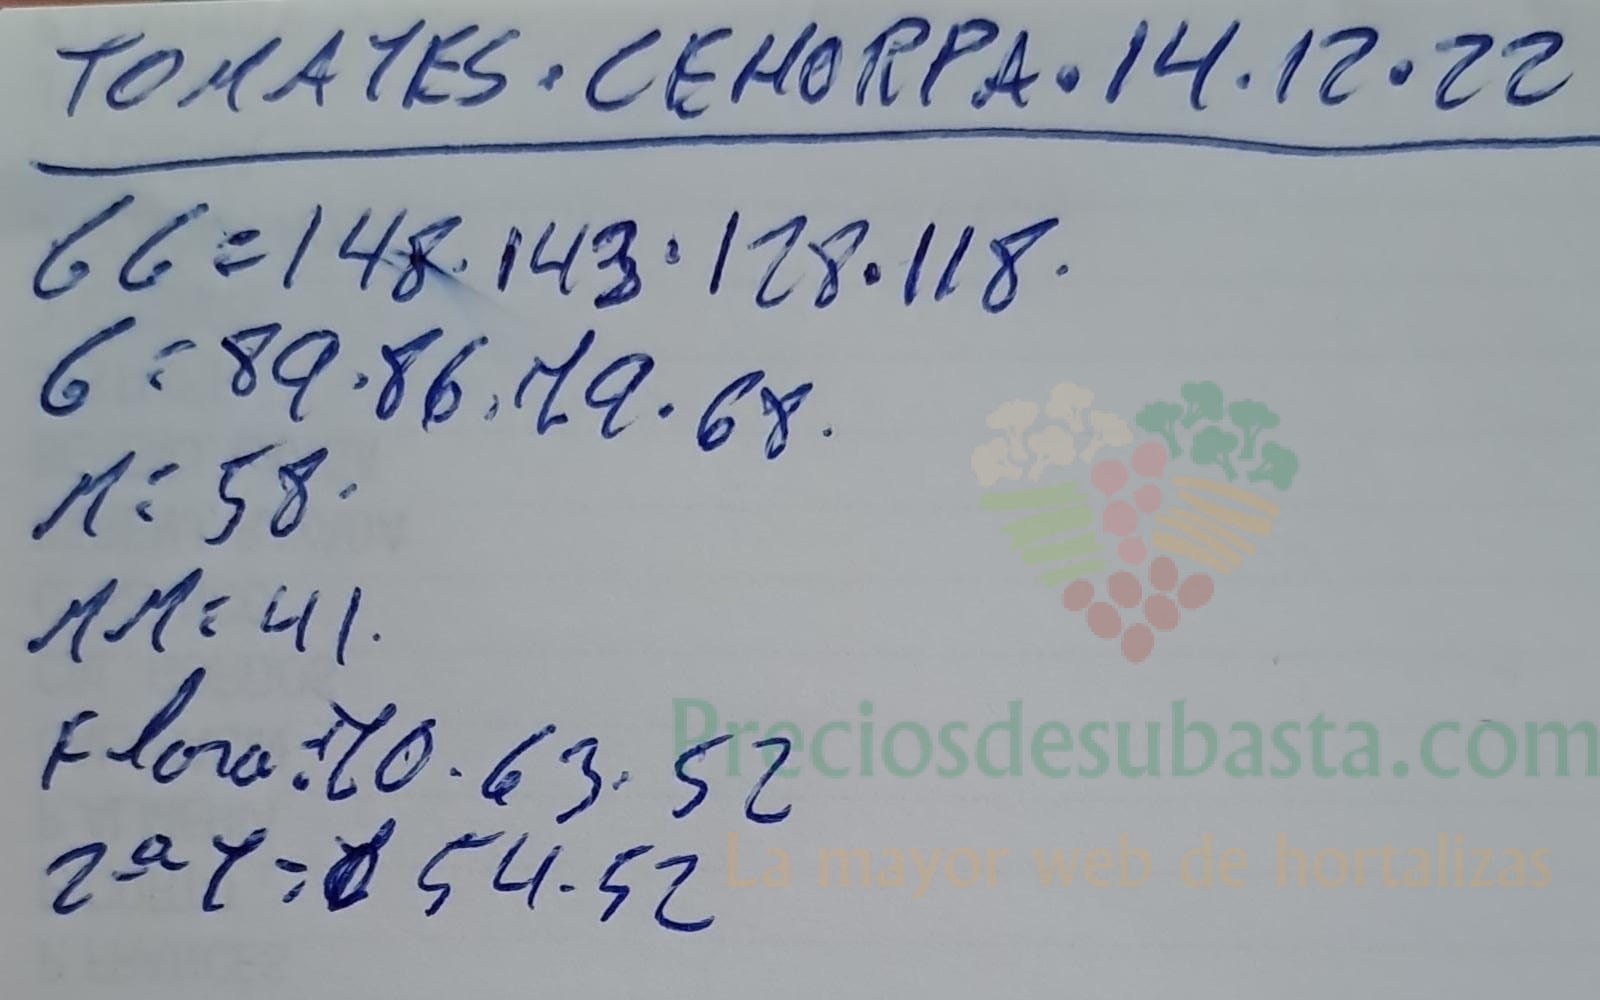 TOMATES · CEHORPA · 14 · 12 · 22
GG = 148 · 143 · 128 · 118 ·
G = 89 · 86 · 79 · 68 ·
M = 58 ·
MM = 41 ·
Flora = 70 · 63 · 52
2ª T = 54 · 52
Preciosdesubasta.com
La mayor web de hortalizas